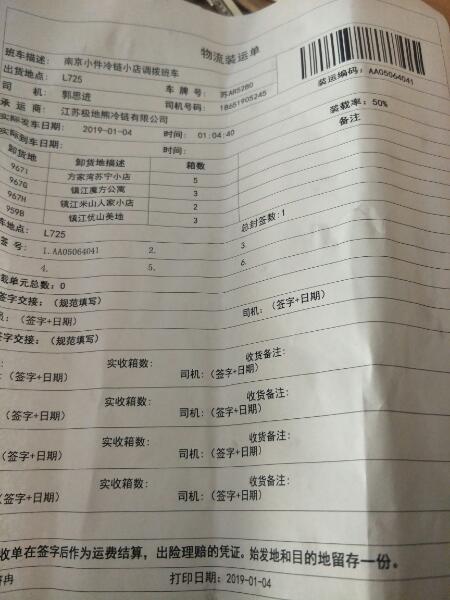 物流装运单
班车描述: 南京小件冷链小店调拨班车
装运编码: AA05064041
出货地点: L725 车牌号: 苏AR5280
司 机: 郭思进 司机号码: 18651905245
装载率: 50%
承运商: 江苏极地熊冷链有限公司
备注
实际发车日期: 2019-01-04 时间: 01:04:40
实际到车日期: 时间:
卸货地 卸货地描述 箱数
9671 方家湾苏宁小店 5
967G 镇江魔方公寓 3
967H 镇江米山人家小店 2
959B 镇江优山美地 3
车地点: L725 总封签数:1
签号: 1.AA05064041 2. 3.
4. 5. 6.
载单元总数: 0
签字交接: (规范填写)
员: (签字+日期) 司机: (签字+日期)
签字交接: (规范填写)
: 实收箱数: 收货备注:
: (签字+日期) 司机: (签字+日期)
实收箱数: 收货备注:
(签字+日期) 司机: (签字+日期)
实收箱数: 收货备注:
(签字+日期) 司机: (签字+日期)
实收箱数: 收货备注:
(签字+日期) 司机: (签字+日期)
收单在签字后作为运费结算，出险理赔的凭证。始发地和目的地留存一份。
冉 打印日期: 2019-01-04